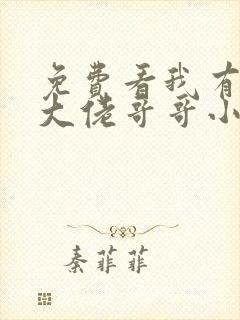 免費看我有
大佬哥哥小
秦菲菲